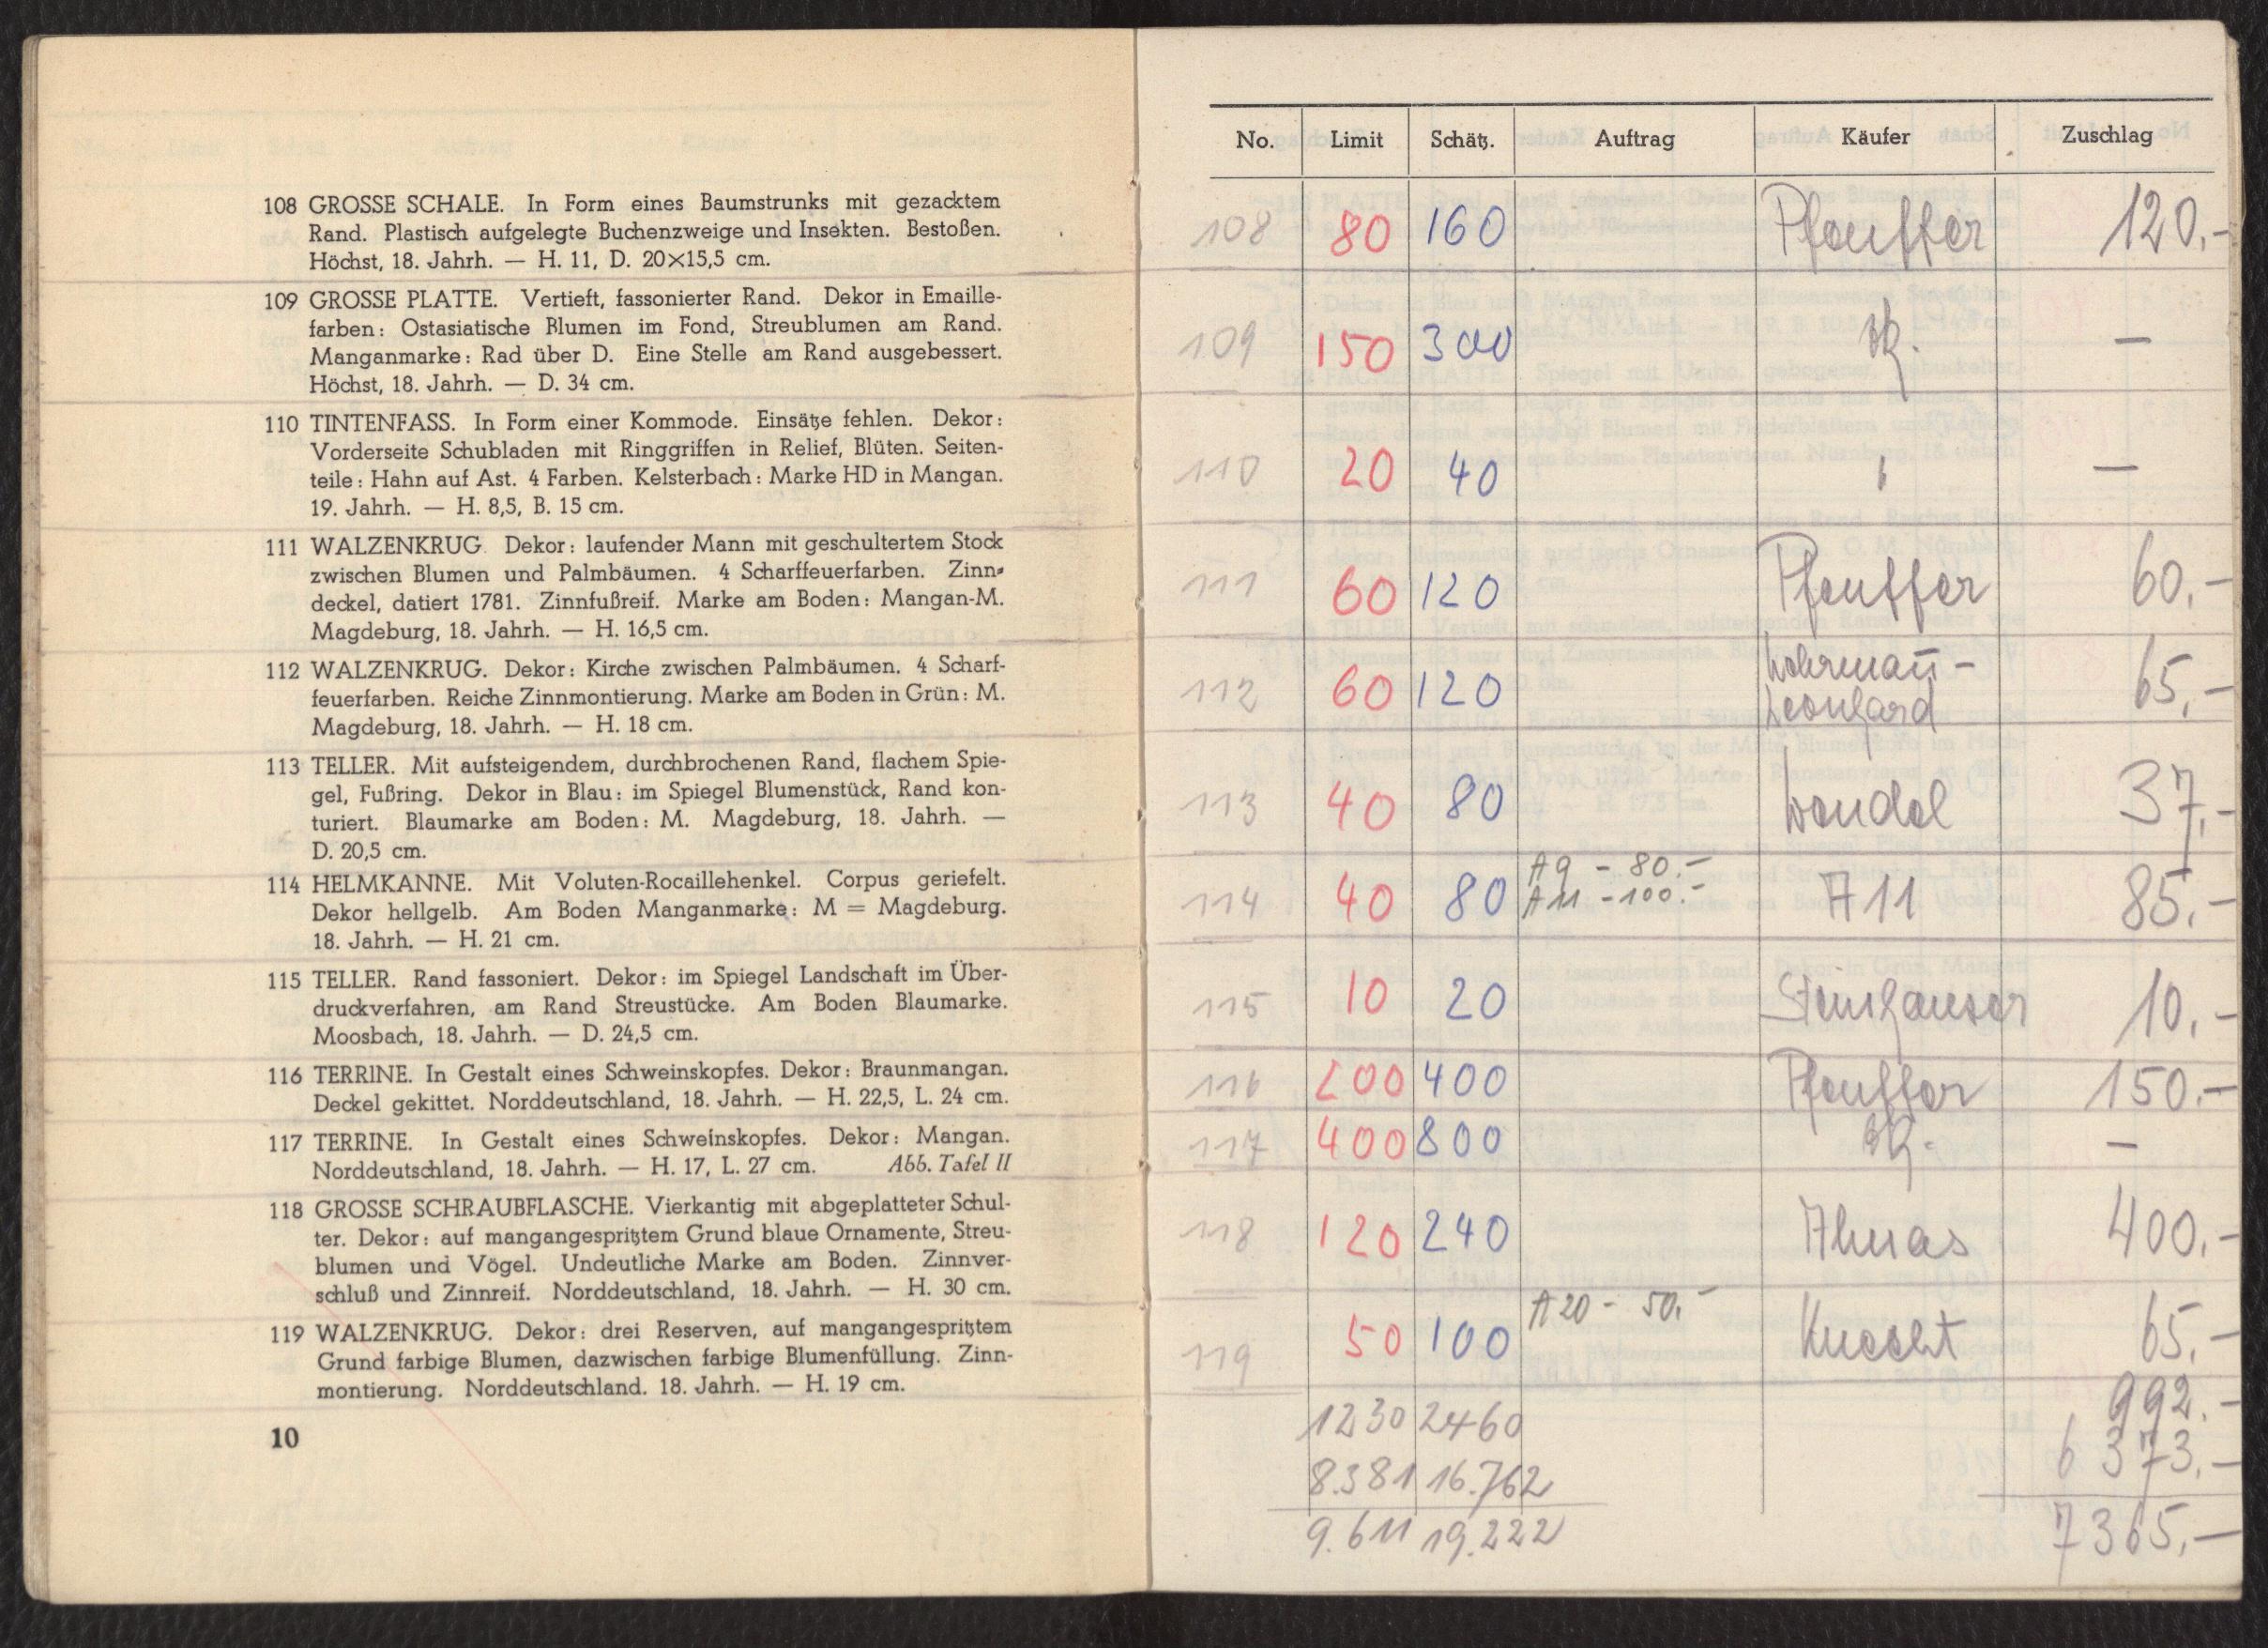 108 GROSSE SCHALE. In Form eines Baumstrunks mit gezacktem
Rand. Plastisch aufgelegte Buchenzweige und Insekten. Bestoßen.
Höchst, 18. Jahrh. — H. 11, D. 20×15,5 cm.
109 GROSSE PLATTE. Vertieft, fassonierter Rand. Dekor in Emaille-
farben: Ostasiatische Blumen im Fond, Streublumen am Rand.
Manganmarke: Rad über D. Eine Stelle am Rand ausgebessert.
Höchst, 18. Jahrh. — D. 34 cm.
110 TINTENFASS. In Form einer Kommode. Einsätze fehlen. Dekor:
Vorderseite Schubladen mit Ringgriffen in Relief, Blüten. Seiten-
teile: Hahn auf Ast. 4 Farben. Kelsterbach: Marke HD in Mangan.
19. Jahrh. — H. 8,5, B. 15 cm.
111 WALZENKRUG. Dekor: laufender Mann mit geschultertem Stock
zwischen Blumen und Palmbäumen. 4 Scharffeuerfarben. Zinn-
deckel, datiert 1781. Zinnfußreif. Marke am Boden: Mangan-M.
Magdeburg, 18. Jahrh. — H. 16,5 cm.
112 WALZENKRUG. Dekor: Kirche zwischen Palmbäumen. 4 Scharf-
feuerfarben. Reiche Zinnmontierung. Marke am Boden in Grün: M.
Magdeburg, 18. Jahrh. — H. 18 cm.
113 TELLER. Mit aufsteigendem, durchbrochenen Rand, flachem Spie-
gel, Fußring. Dekor in Blau: im Spiegel Blumenstück, Rand kon-
turiert. Blaumarke am Boden: M. Magdeburg, 18. Jahrh. —
D. 20,5 cm.
114 HELMKANNE. Mit Voluten-Rocaillehenkel. Corpus geriefelt.
Dekor hellgelb. Am Boden Manganmarke: M = Magdeburg.
18. Jahrh. — H. 21 cm.
115 TELLER. Rand fassoniert. Dekor: im Spiegel Landschaft im Über-
druckverfahren, am Rand Streustücke. Am Boden Blaumarke.
Moosbach, 18. Jahrh. — D. 24,5 cm.
116 TERRINE. In Gestalt eines Schweinskopfes. Dekor: Braunmangan.
Deckel gekittet. Norddeutschland, 18. Jahrh. — H. 22,5, L. 24 cm.
117 TERRINE. In Gestalt eines Schweinskopfes. Dekor: Mangan.
Norddeutschland, 18. Jahrh. — H. 17, L. 27 cm. Abb. Tafel II
118 GROSSE SCHRAUBFLASCHE. Vierkantig mit abgeplatteter Schul-
ter. Dekor: auf mangangespritztem Grund blaue Ornamente, Streu-
blumen und Vögel. Undeutliche Marke am Boden. Zinnver-
schluß und Zinnreif. Norddeutschland, 18. Jahrh. — H. 30 cm.
119 WALZENKRUG. Dekor: drei Reserven, auf mangangespritztem
Grund farbige Blumen, dazwischen farbige Blumenfüllung. Zinn-
montierung. Norddeutschland. 18. Jahrh. — H. 19 cm.
10
No. Limit Schätz. Auftrag Käufer Zuschlag
108 80 160 Pfeuffer 120.-
109 150 300 —
110 20 40 —
111 60 120 Pfeuffer 60.-
112 60 120 Leonhard 65.-
113 40 80 Wendel 37.-
A9 - 80.-
114 40 80 A11 - 100.- A11 85.-
115 10 20 Steinhauser 10.-
116 200 400 Pfeuffer 150.-
117 400 800 —
118 120 240 400.-
119 50 100 A20 - 50.- Knecht 65.-
1230 2460 992.-
8.381 16.762 6 373.-
9.611 19.222 7365.-